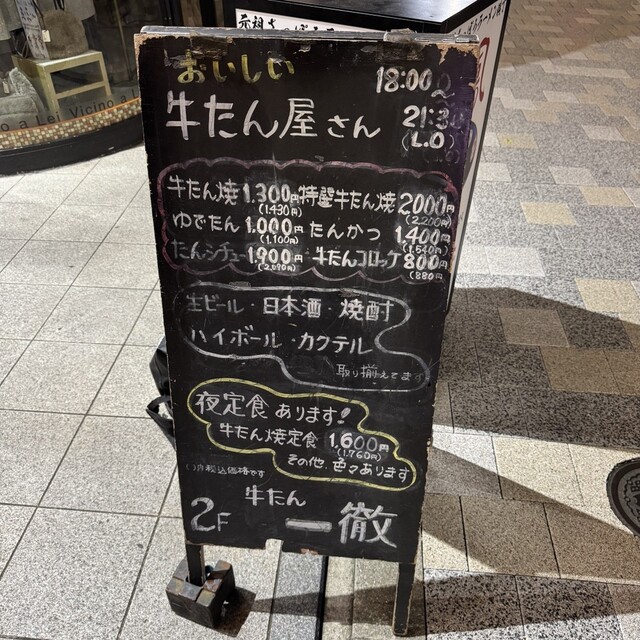 おいしい
18:00〜
牛たん屋さん
21:30
(L.O)
牛たん焼 1,300円 特選牛たん焼 2000円
(1,430円) (2,200円)
ゆでたん 1,000円 たんかつ 1,400円
(1,100円) (1,540円)
たんシチュー 1,900円 牛たんコロッケ 800円
(2,090円) (880円
生ビール・日本酒・焼酎
ハイボール・カクテル
取り揃えてます
夜定食あります!
牛たん焼定食 1,600円
(1,760円)
その他、色々あります
( )内税込価格です
牛たん
2F 一徹
o a Lei Vicino a L